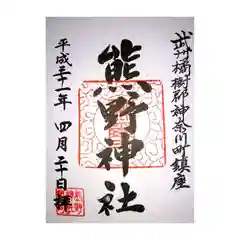 武州橘樹郡神奈川町鎮座
熊野神社
平成三十一年 四月 二十日 拝